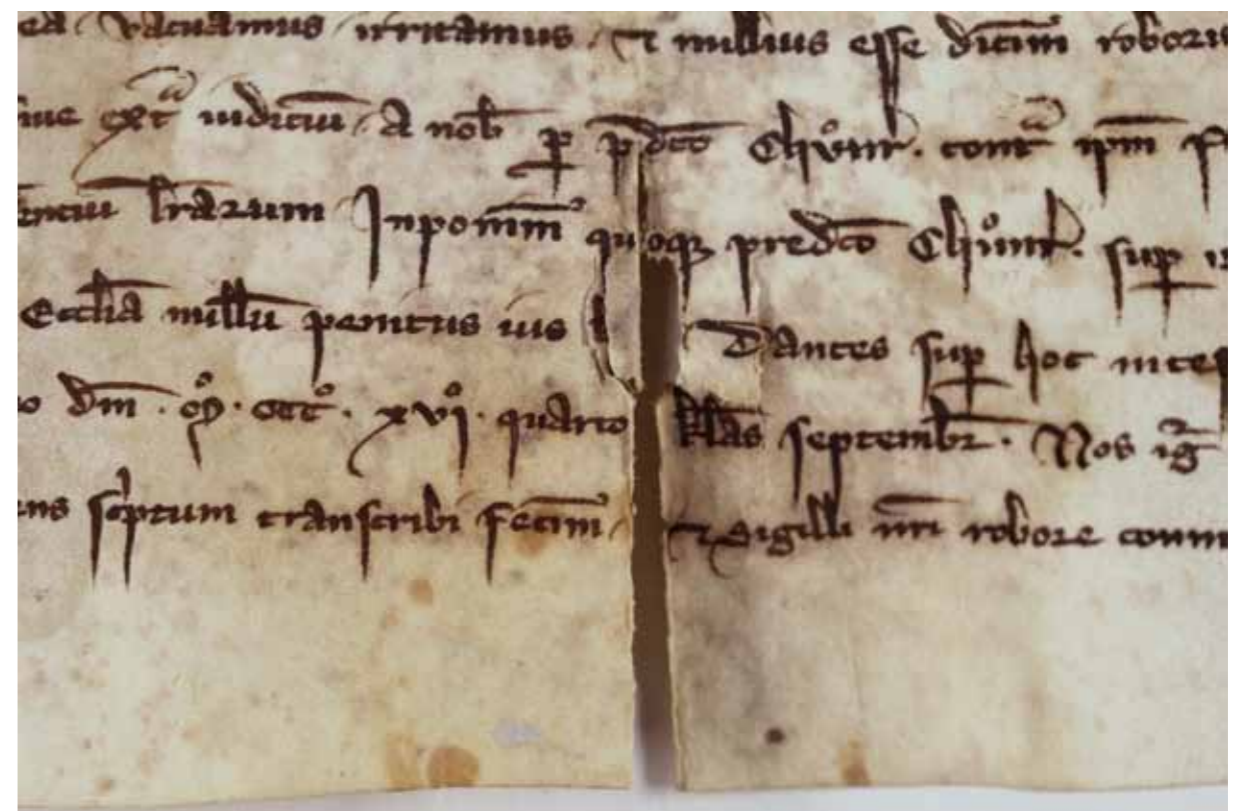 ea vacuamus irritamus ⁊ nullius esse dicim̄ roboris
iue ext̾ᵃ iudiciū A nob̄ ꝑ p̄dc̄o Chůnr̄. contᵃ ip̄m
entiū lr̄arum Inponim̄ quoqꝫ predc̄o Chůnr̄. suꝑ
Eccl̄ia nullū penitus ius Dantes suꝑ hoc
o dn̄i . mͦ . CCCͦ . xviͦ . quarto kl̄as septembr̄ . Nos ig̅
ens sc͛ptum transcribi fecim̄ ⁊ Sigilli nr̄i robore comm